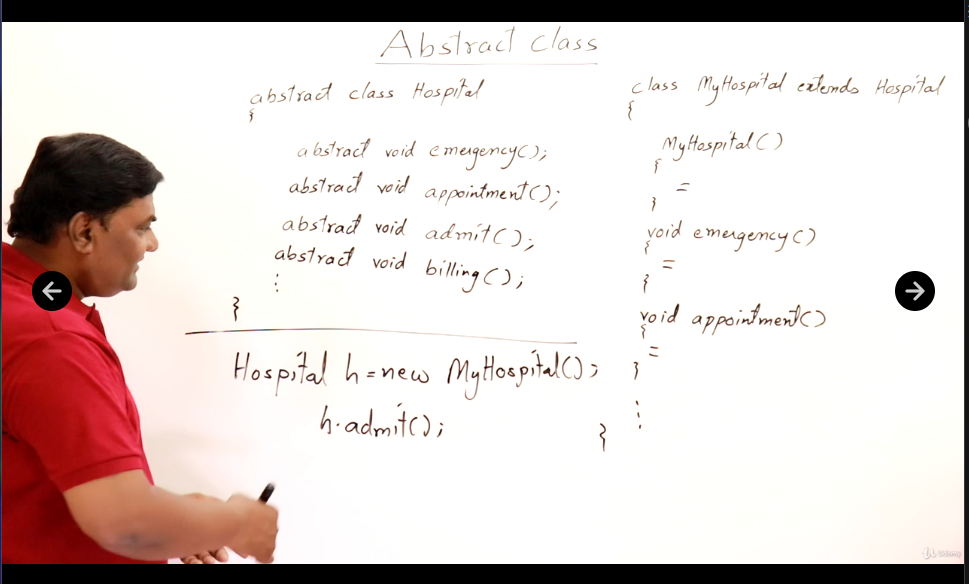 Abstract class
abstract class Hospital
{
abstract void emergency();
abstract void appointment();
abstract void admit();
abstract void billing();
⋮
}
Hospital h=new MyHospital();
h.admit();
class MyHospital extends Hospital
{
MyHospital()
{
=
}
void emergency()
{
=
}
void appointment()
{
=
}
⋮
}
Udemy